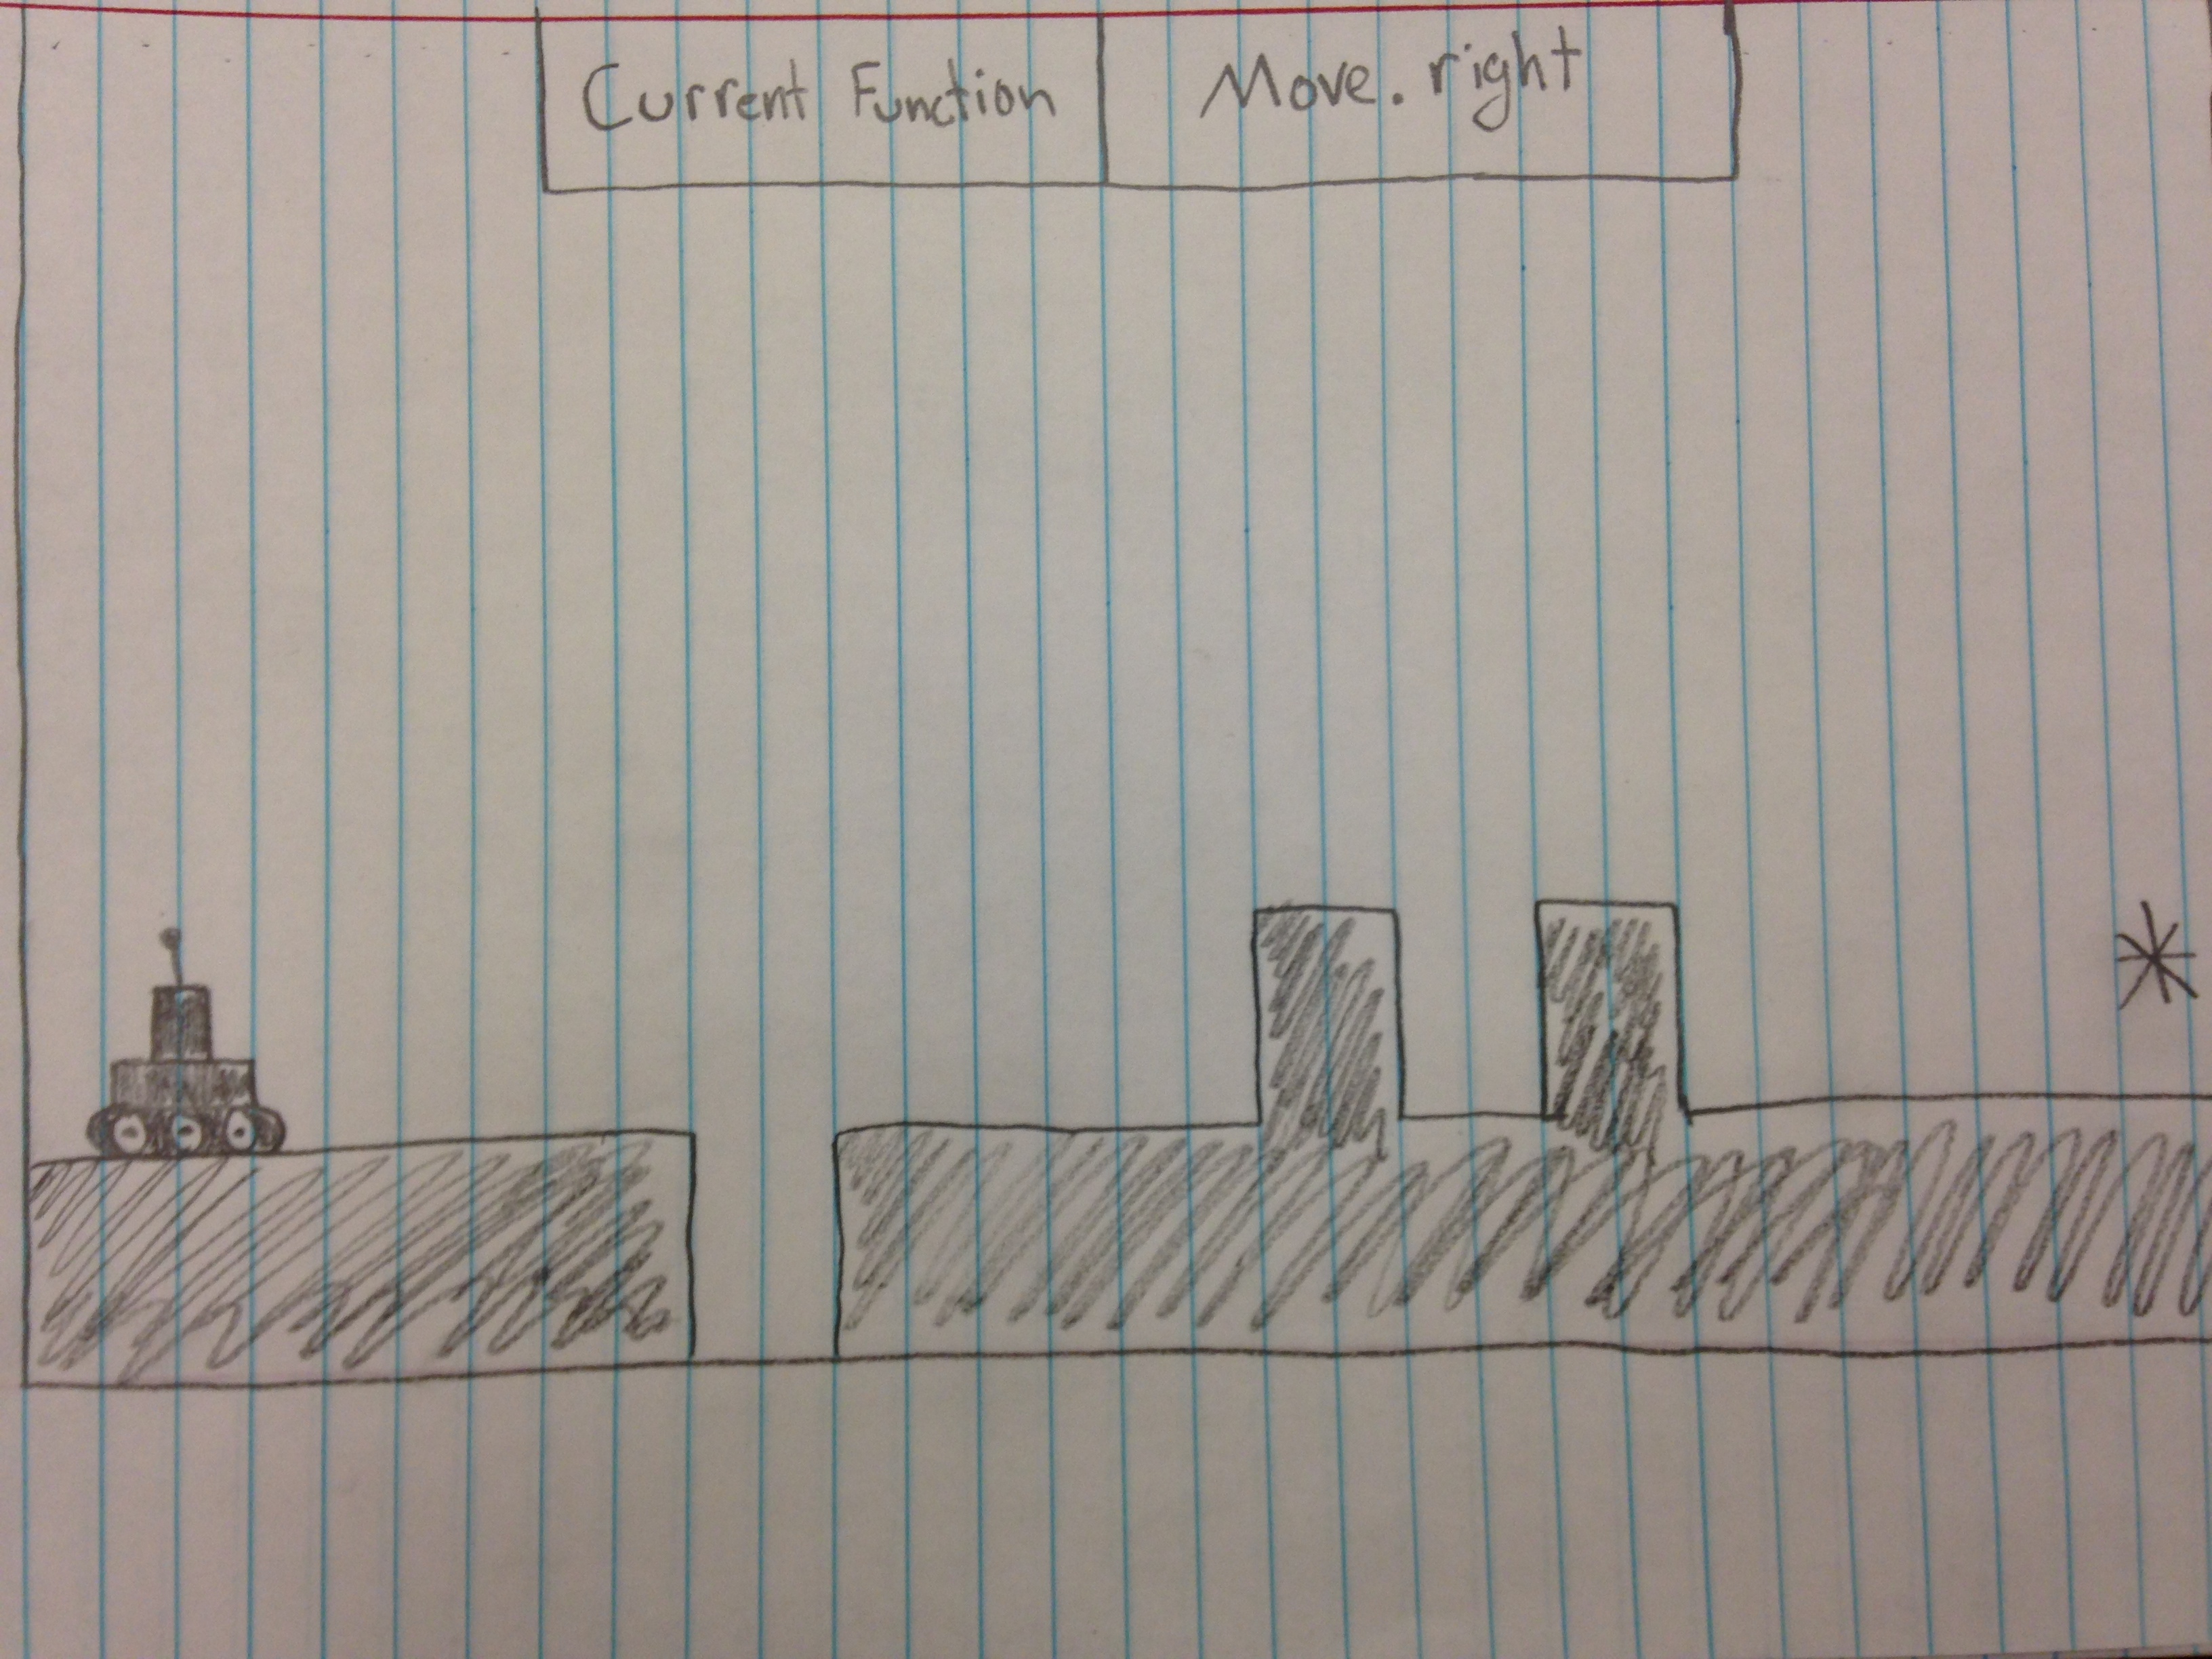 Current Function
Move. right